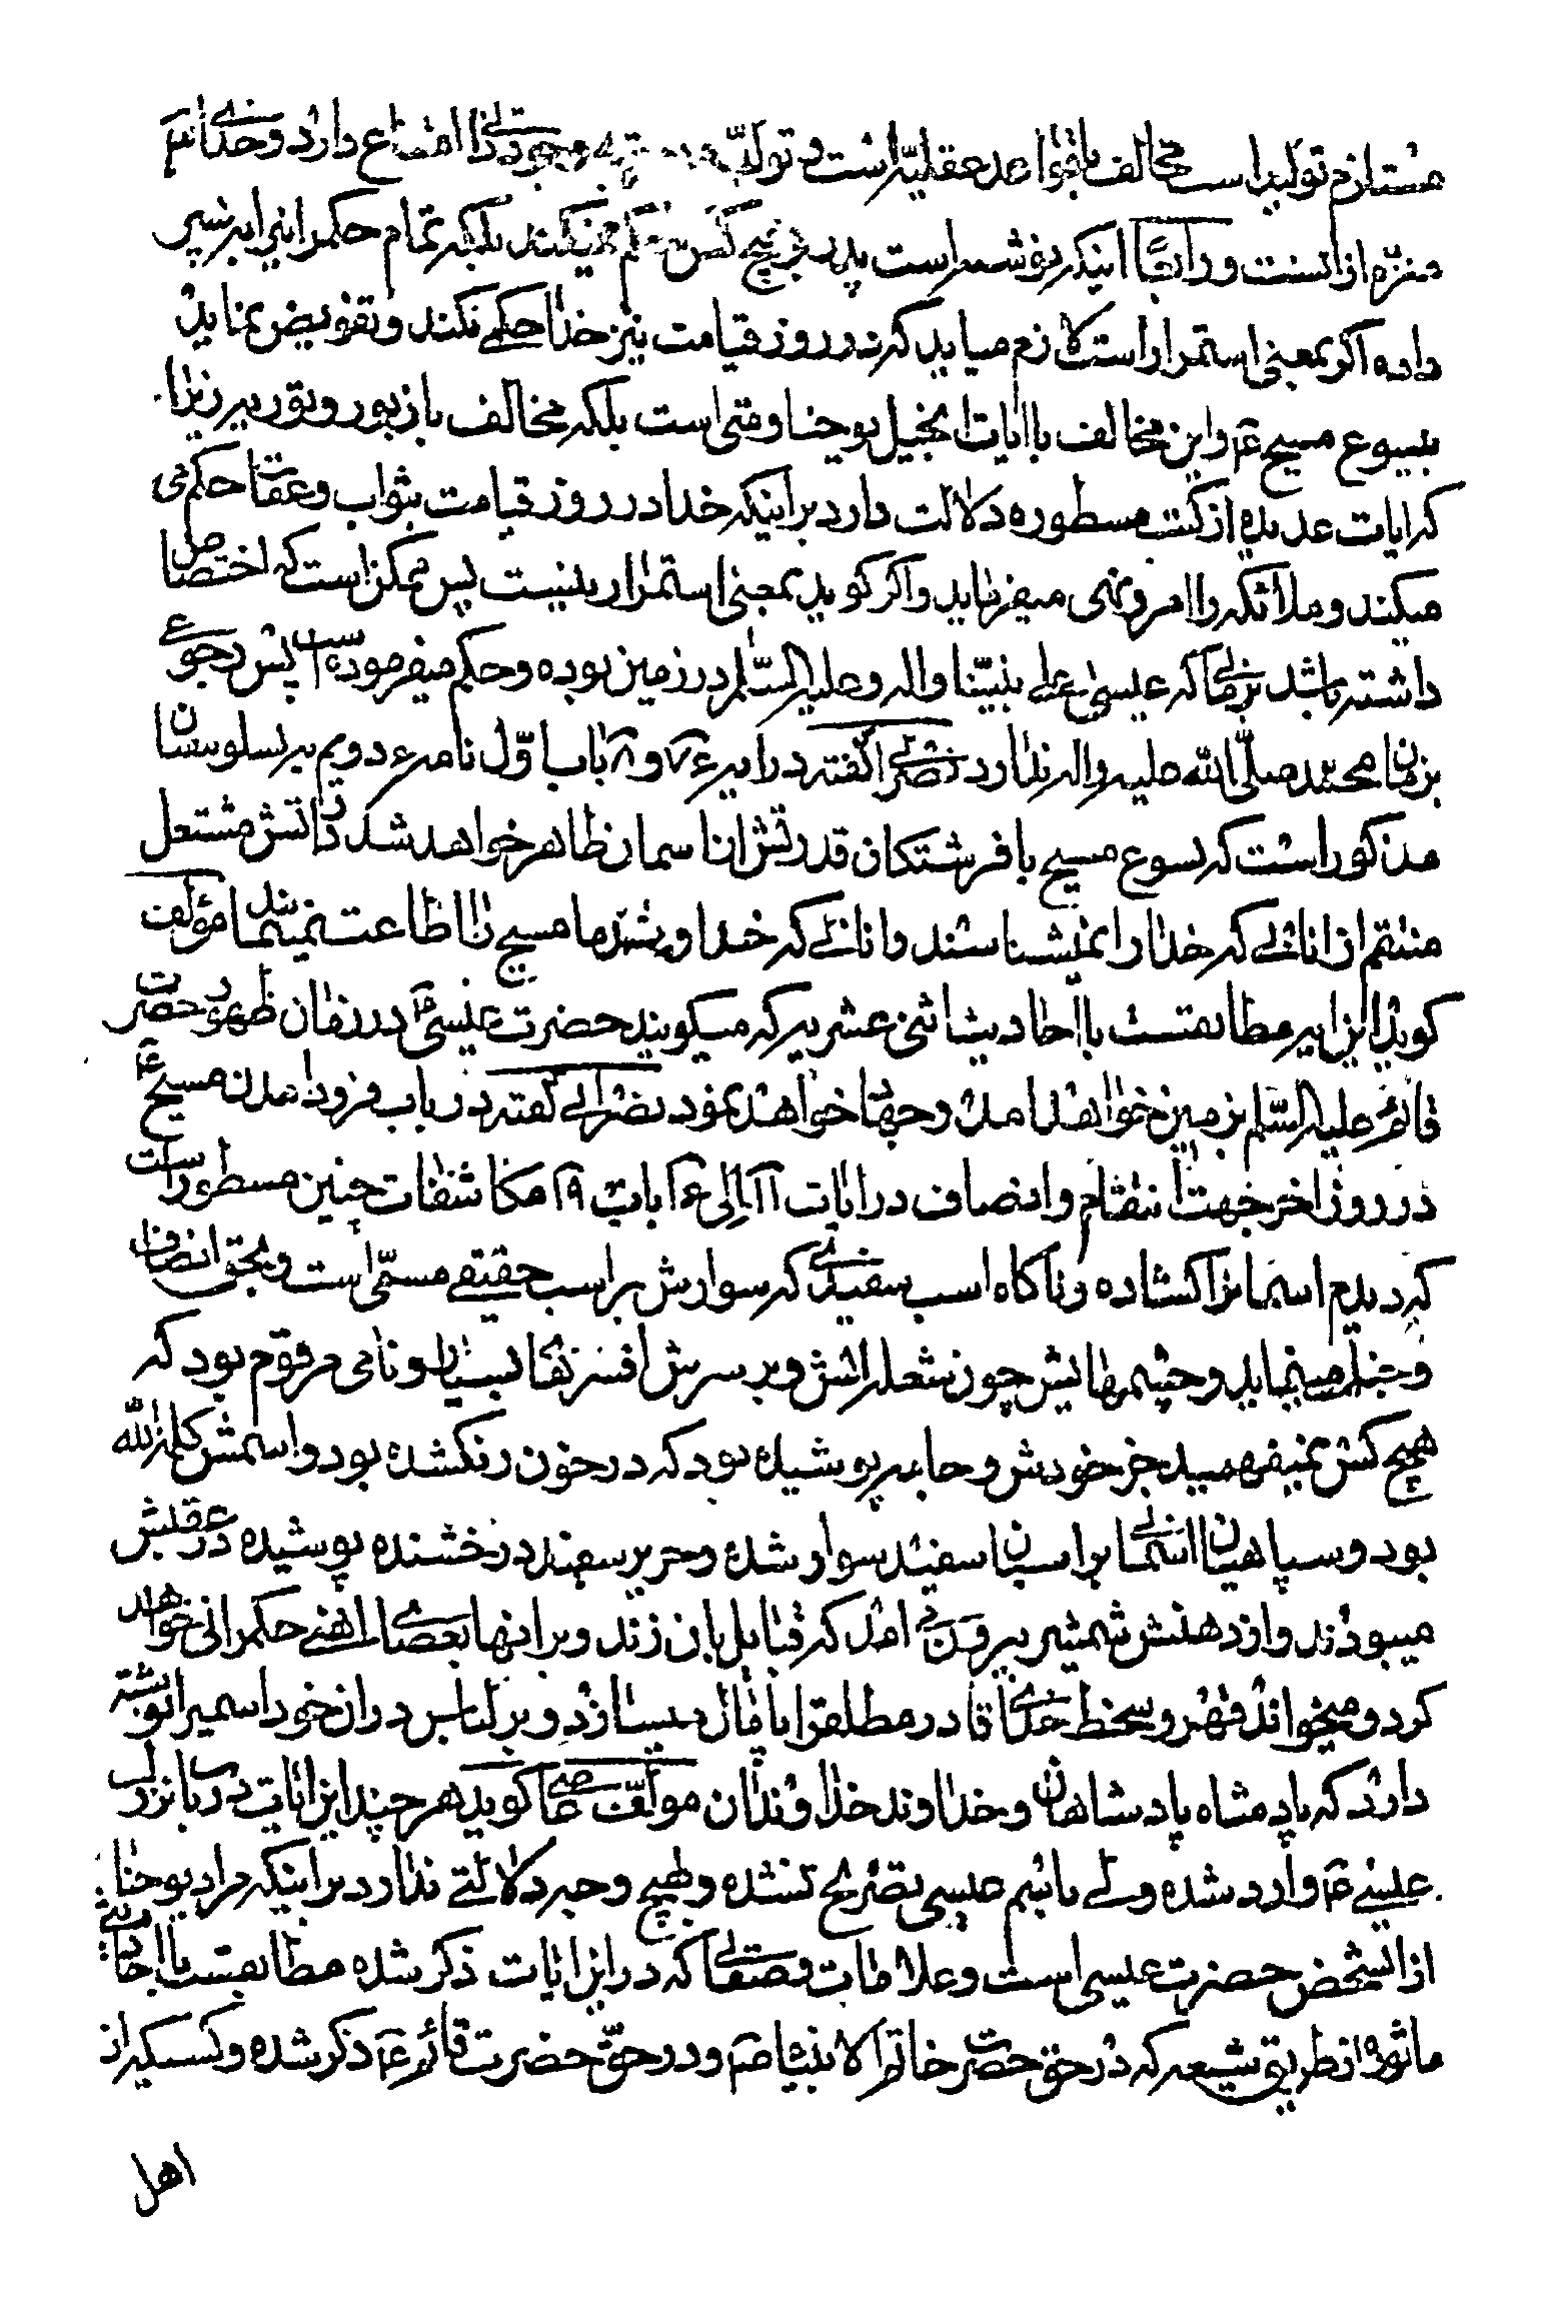 مستلزم تولید است مخالف با قواعد عقلیّه است و تولّد موجودی را امتناع دارد و خدای تعالی
منزّه از آنست و رابعًا اینکه نوشته است پدر بر هیچ کس حکم نمیکند بلکه تمام حکمرانی را به پسر
داده اگر بمعنی استمرار است لازم میاید که در روز قیامت نیز خدا حکمی نکند و تفویض نماید
بیسوع مسیح ع۴ و این مخالف با ایات انجیل یوحنا و متی است بلکه مخالف با زبور و توریه زیرا
که ایات عدیده از کتب مسطوره دلالت دارد بر اینکه خدا در روز قیامت بثواب و عقاب حکم می
میکند و ملائکه را امر و نهی میفرماید و اگر گوید بمعنی استمرار نیست پس ممکن است که اختصاص
داشته باشد بزمانی که عیسی علی نبیّنا واله وعلیه السّلم در زمین بوده و حکم میفرموده است پس رجوعی
بزمان محمد صلّی الله علیه واله ندارد نصرانی گفته در ایه ء ۷ و ۸ باب اوّل نامه ء دویم به تسلونیسان
مذکور است که یسوع مسیح با فرشتگان قدرتش از اسمان ظاهر خواهد شد در اتش مشتعل
منتقم از انانی که خدا را نمیشناسند و انانی که خداوند ما مسیح را اطاعت نمینمایند مؤلف
گوید این ایه مطابقست با احادیث اثنی عشریه که میگویند حضرت عیسی ع در زمان ظهور حضرت
قائم علیه السّلم بزمین خواهد امد و جهاد خواهد نمود نصرانی گفته در باب فرود امدن مسیح ع۴
در روز اخر جهت انتقام و انصاف در ایات ۱۱ الی ۱۶ باب ۱۹ مکاشفات چنین مسطور است
که دیدم اسمان را گشاده و ناگاه اسب سفیدی که سوارش بر اسب حقیقی مسمّی است و بحق انصاف
و جنگ مینماید و چشمهایش چون شعله اتش و بر سرش افسرهای بسیار و نامی مرقوم بود که
هیچ کس نمیفهمید جز خودش و جامه پوشیده بود که در خون رنگ شده بود و اسمش کلمة الله
بود و سپاهیان اسمانی بر اسبان سفید سوار شده و حریر سفید درخشنده پوشیده در عقبش
میبودند و از دهنش شمشیر بیرون می امد که قبایل بان زند و بر انها بعصای اهنی حکمرانی خواهد
کرد و میخواند قهر و سخط خدای قادر مطلق را پامال میسازد و بر لباس و ران خود اسمی را نوشته
دارد که پادشاه پادشاهان و خداوند خداوندان مولّف گوید هر چند این ایات در باب نزول
عیسی ع۴ وارد شده ولی باسم عیسی تصریح نشده و بهیچ وجه دلالتی ندارد بر اینکه مراد یوحنا
از انشخص حضرت عیسی است و علامات و صفاتی که در این ایات ذکر شده مطابقست با احادیث
ماثوره از طریق شیعه که در حق حضرت خاتم الانبیاء ص و در حقّ حضرت قائم ع۴ ذکر شده و کسیکه از
اهل